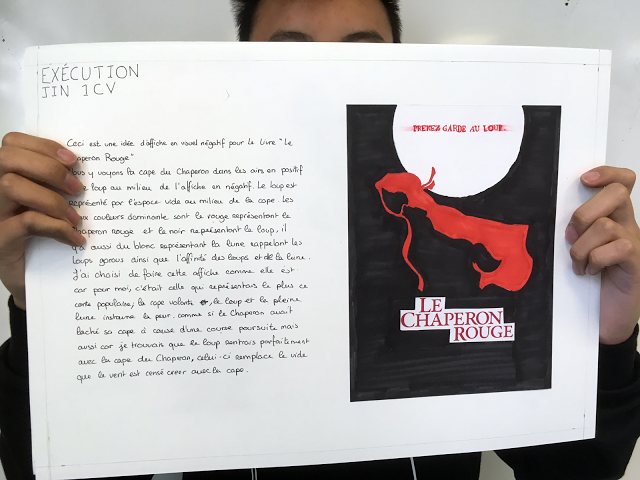 EXÉCUTION
JIN 1CV
Ceci est une idée d'affiche en visuel négatif pour le Livre "Le
haperon Rouge"
ous y voyons la cape du Chaperon dans les airs en positif
e loup au milieu de l'affiche en négatif. Le loup est
représenté par l'espace vide au milieu de la cape. Les
ux couleurs dominante sont le rouge représentant le
haperon rouge et le noir représentant le loup, il
y a aussi du blanc représentant la lune rappelant les
loups garous ainsi que l'affinité des loups et de la lune.
J'ai choisi de faire cette affiche comme elle est
car pour moi, c'était celle qui représentais le plus ce
conte populaire, la cape volante, le loup et la pleine
lune instaure la peur. comme si le Chaperon avait
laché sa cape à cause d'une course poursuite mais
aussi car je trouvais que le loup rentrais parfaitement
avec la cape du Chaperon, celui-ci remplace le vide
que le vent est censé creer avec la cape.
PRENEZ GARDE AU LOUP.
LE
CHAPERON
ROUGE